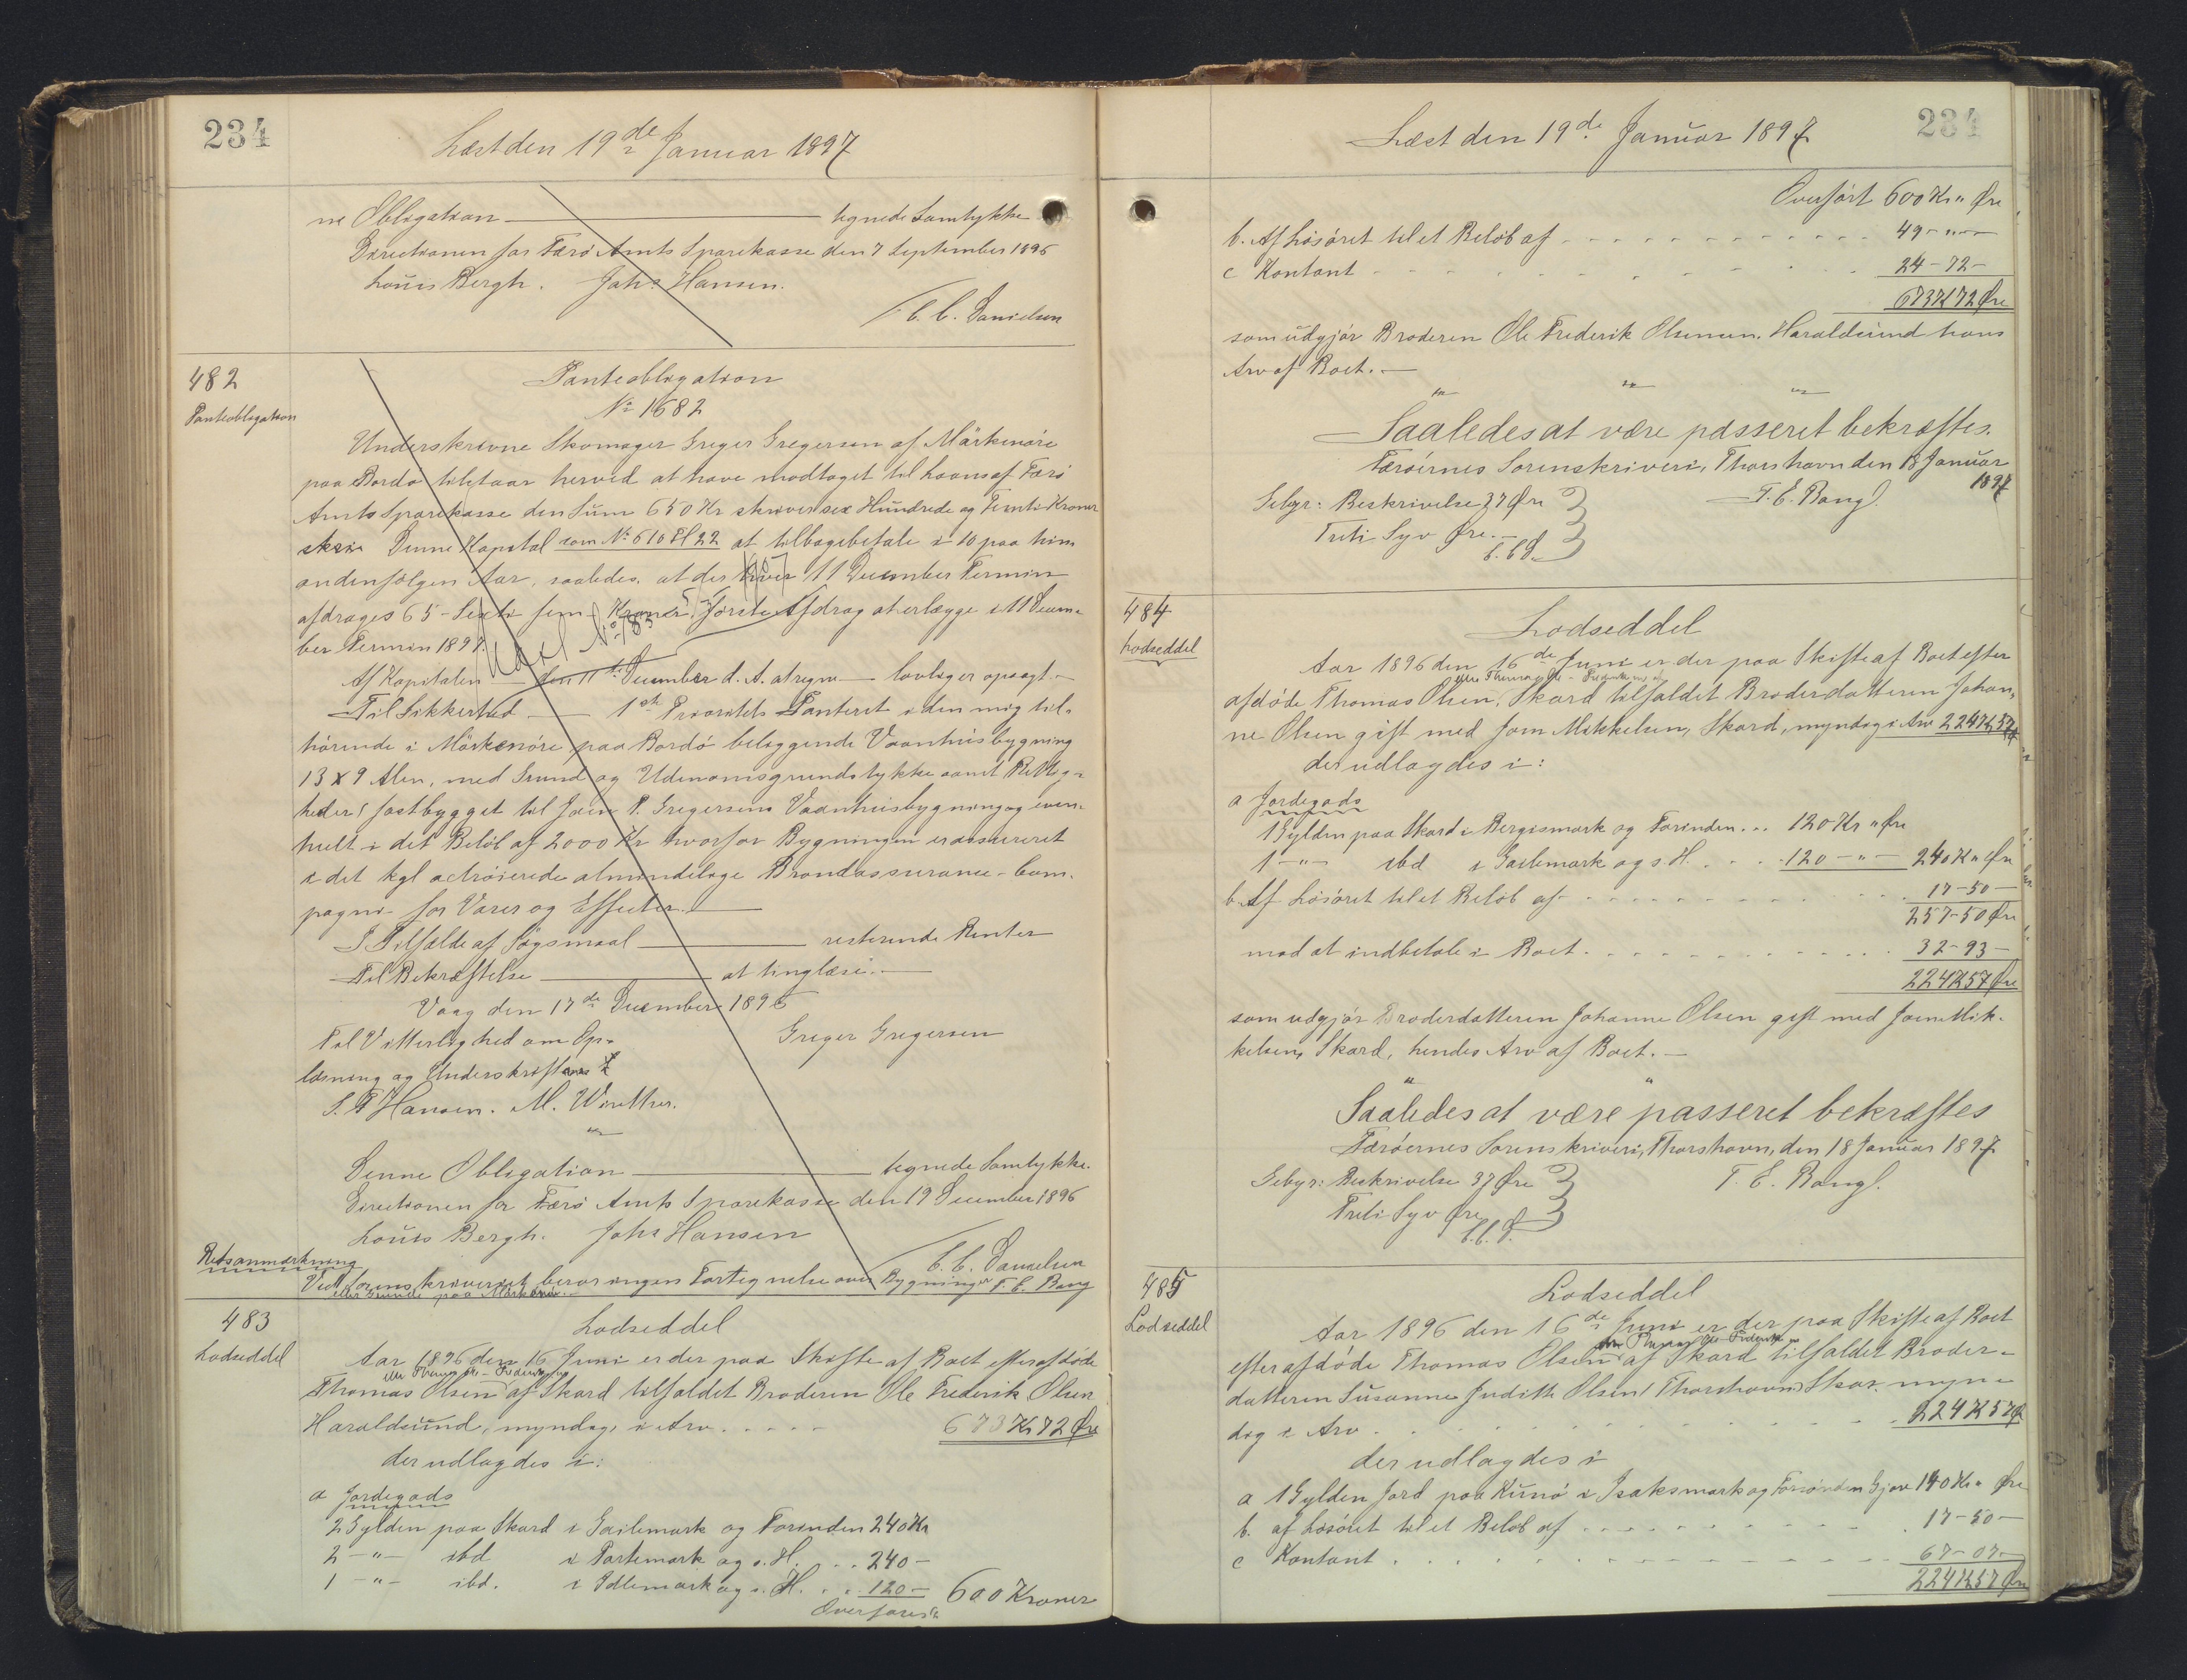 234
Læst den 19de Januar 1897
ne Obligation — tegnede Samtykke
Directionen for Færö Amts Sparekasse den 7 September 1896
Louis Bergh. Johs Hansen.
C. C. Danielsen
482
Panteobligation
Panteobligation
No 1682
Underskrevne Skomager Greger Gregersen af Märkenöre
paa Bordö tilstaar herved at have modtaget til Laans af Færö
Amts Sparekasse den Sum 650 Kr skriver sex Hundrede og Femti Kroner
Denne Kapital som No 610 Fl 22 at tilbagebetale i 10 paa hin
andenfölgen Aar, saaledes, at der hver 11 December Termin
afdrages 65 - Sexti fem - Kroner, förste Afdrag at erlægge i 11 Decem-
ber Termin 1897.
Af Kapitalen — den 11te December d. A. at regne — lovlig er opsagt. —
Til Sikkerhed — 1ste Prioritets Panteret i den mig til-
hörende i Mörkenöre paa Bordö beliggende Vaanhusbygning
13 x 9 Alen, med Grund og Udenomsgrundstykke samt Rettig-
heder, fastbygget til Joen P. Gregersens Vaanhusbygning og even-
tuelt i det Belöb af 2000 Kr hvorfor Bygningen er assureret
i det kgl octroierede almindelige Brandassurance-Com-
pagni for Varer og Effecter. —
I Tilfælde af Sögsmaal — resterende Renter
Til Bekræftelse — at tinglæse. —
Vaag den 17de December 1896
Til Vitterlighed om Op-
Greger Gregersen
læsning og Underskriften
S. P Hansen. M. Winther.
Denne Obligation — tegnede Samtykke.
Directionen for Færö Amts Sparekasse den 19 December 1896
Louis Bergh. Johs Hansen
C. C. Danielsen
Retsanmærkning
Ved Sorenskriveriet beror ingen Fortegnelse over Bygninger
eller Grunde paa Mörkenöre. T. E. Bang
483
Lodseddel
Lodseddel
Aar 1896 den 16 Juni er der paa Skifte af Boet efter afdöde
Thomas Olsen af Skard tilfaldet Broderen Ole Frederik Olsen
Haraldsund, myndig, i Arv . . . . . 673 Kr 72 Øre
der udlagdes i:
a Jordegods
2 Gylden paa Skard i Gailemark og Forinden 240 Kr
2 - " - ibd i Partemark og s. H. . . 240 -
1 - " - ibd. i Idlemark og s. H. . . 120 - 600 Kroner
Overföres
234
Læst den 19de Januar 1897
Overfört 600 Kr " Øre
b. Af Lösöret til et Belöb af 49 - " -
c Kontant 24 - 72 -
673 Kr 72 Øre
som udgjör Broderen Ole Frederik Olsen, Haraldsund hans
Arv af Boet. —
Saaledes at være passeret bekræftes.
Færöernes Sorenskriveri, Thorshavn den 18 Januar
1897
Gebyr: Beskrivelse 37 Øre
T. E. Bang.
Treti Syv Øre. —
C. C. D.
484
Lodseddel
Lodseddel
Aar 1896 den 16de Juni er der paa Skifte af Boet efter
afdöde Thomas Olsen, Skard tilfaldet Broderdatteren Johan-
ne Olsen gift med Joen Mikkelsen, Skard, myndig i Arv 224 Kr 57 Øre
der udlagdes i:
a Jordegods
1 Gylden paa Skard i Bergismark og Forinden . . . 120 Kr " Øre
1 - " - ibd i Gailemark og s. H. . . . 120 - " - 240 Kr " Øre
b. Af Lösöret til et Belöb af 17 - 50 -
257 - 50 Øre
mod at indbetale i Boet 32 - 93 -
224 Kr 57 Øre
som udgjör Broderdatteren Johanne Olsen gift med Joen Mik-
kelsen, Skard, hendes Arv af Boet. —
Saaledes at være passeret bekræftes
Færöernes Sorenskriveri, Thorshavn, den 18 Januar 1897
Gebyr: Beskrivelse 37 Øre
T. E. Bang.
Treti Syv Øre
C. C. D.
485
Lodseddel
Lodseddel
Aar 1896 den 16de Juni er der paa Skifte af Boet
efter afdöde Thomas Olsen af Skard tilfaldet Broder-
datteren Susanne Judithe Olsen, Thorshavn, myn-
dig i Arv . . . 224 Kr 57 Øre
der udlagdes i
a 1 Gylden Jord paa Kunö i Isaksmark og Gjov 140 Kr " Øre
b. af Lösöret til et Belöb af 17 - 50 -
c Kontant 67 - 07 -
224 Kr 57 Øre